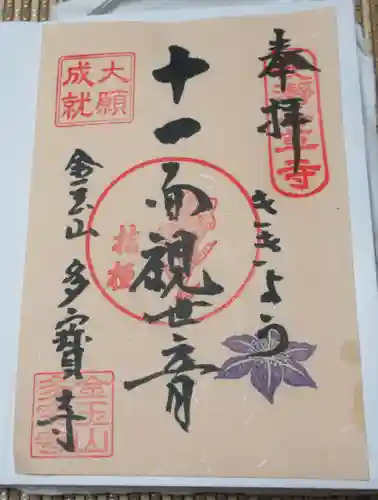 奉拝
ききょう
十一面観世音
大願
成就
桔梗
金玉山 多寳寺
金玉山
多宝寺